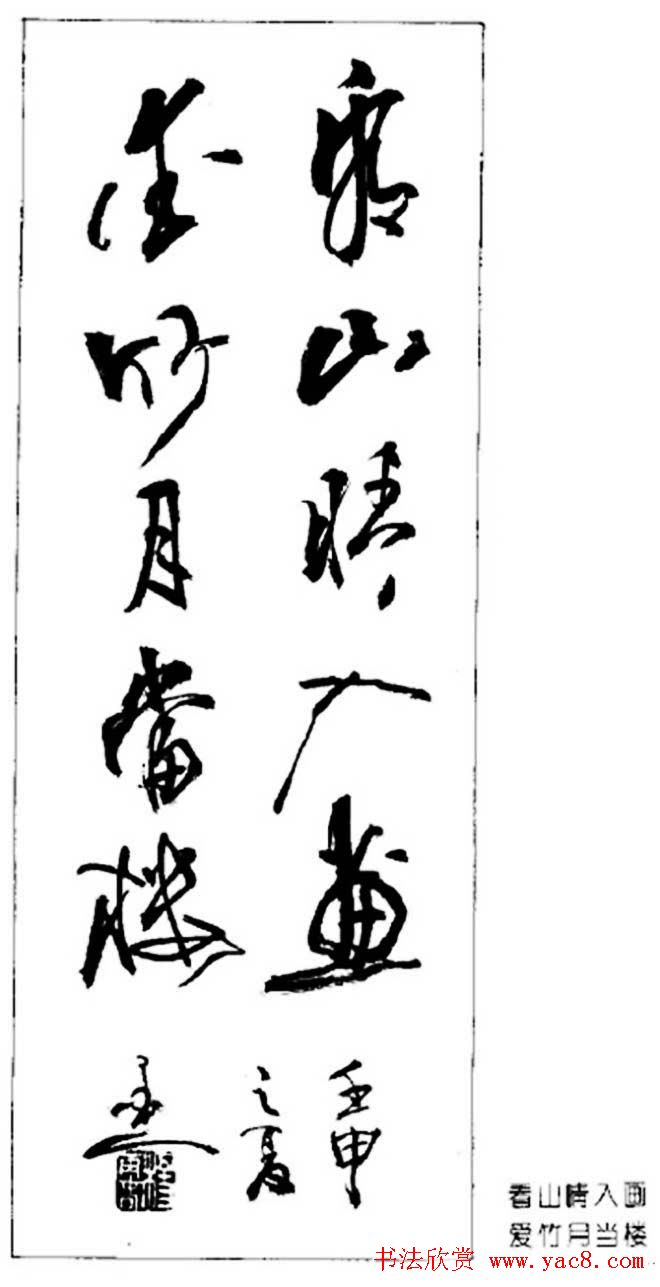 看山晴入畫
愛竹月當樓
壬申
之夏
看山晴入画
爱竹月当楼
书法欣赏 www.yac8.com